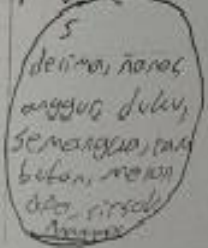 5
delima, nanas,
anggur, duku,
semangga, ram
butan, melon
sirsak,